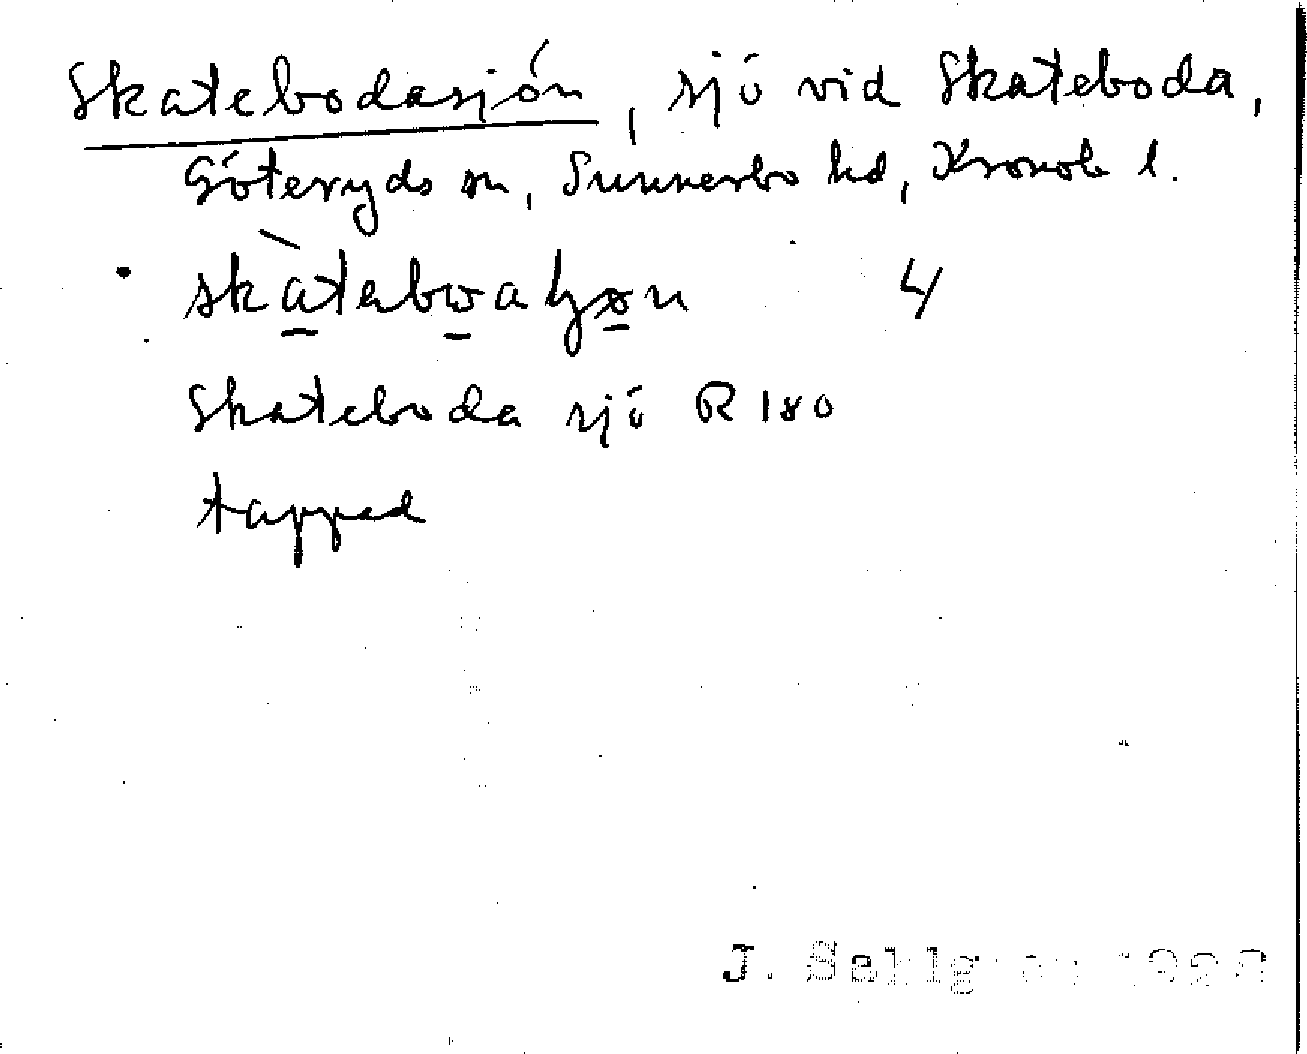 Skatebodasjön, sjö vid Skateboda,
Göteryds sn, Sunnerbo hd, Kronob l.
4
Skateboda sjö R 180
tappad
J. Sahlgren